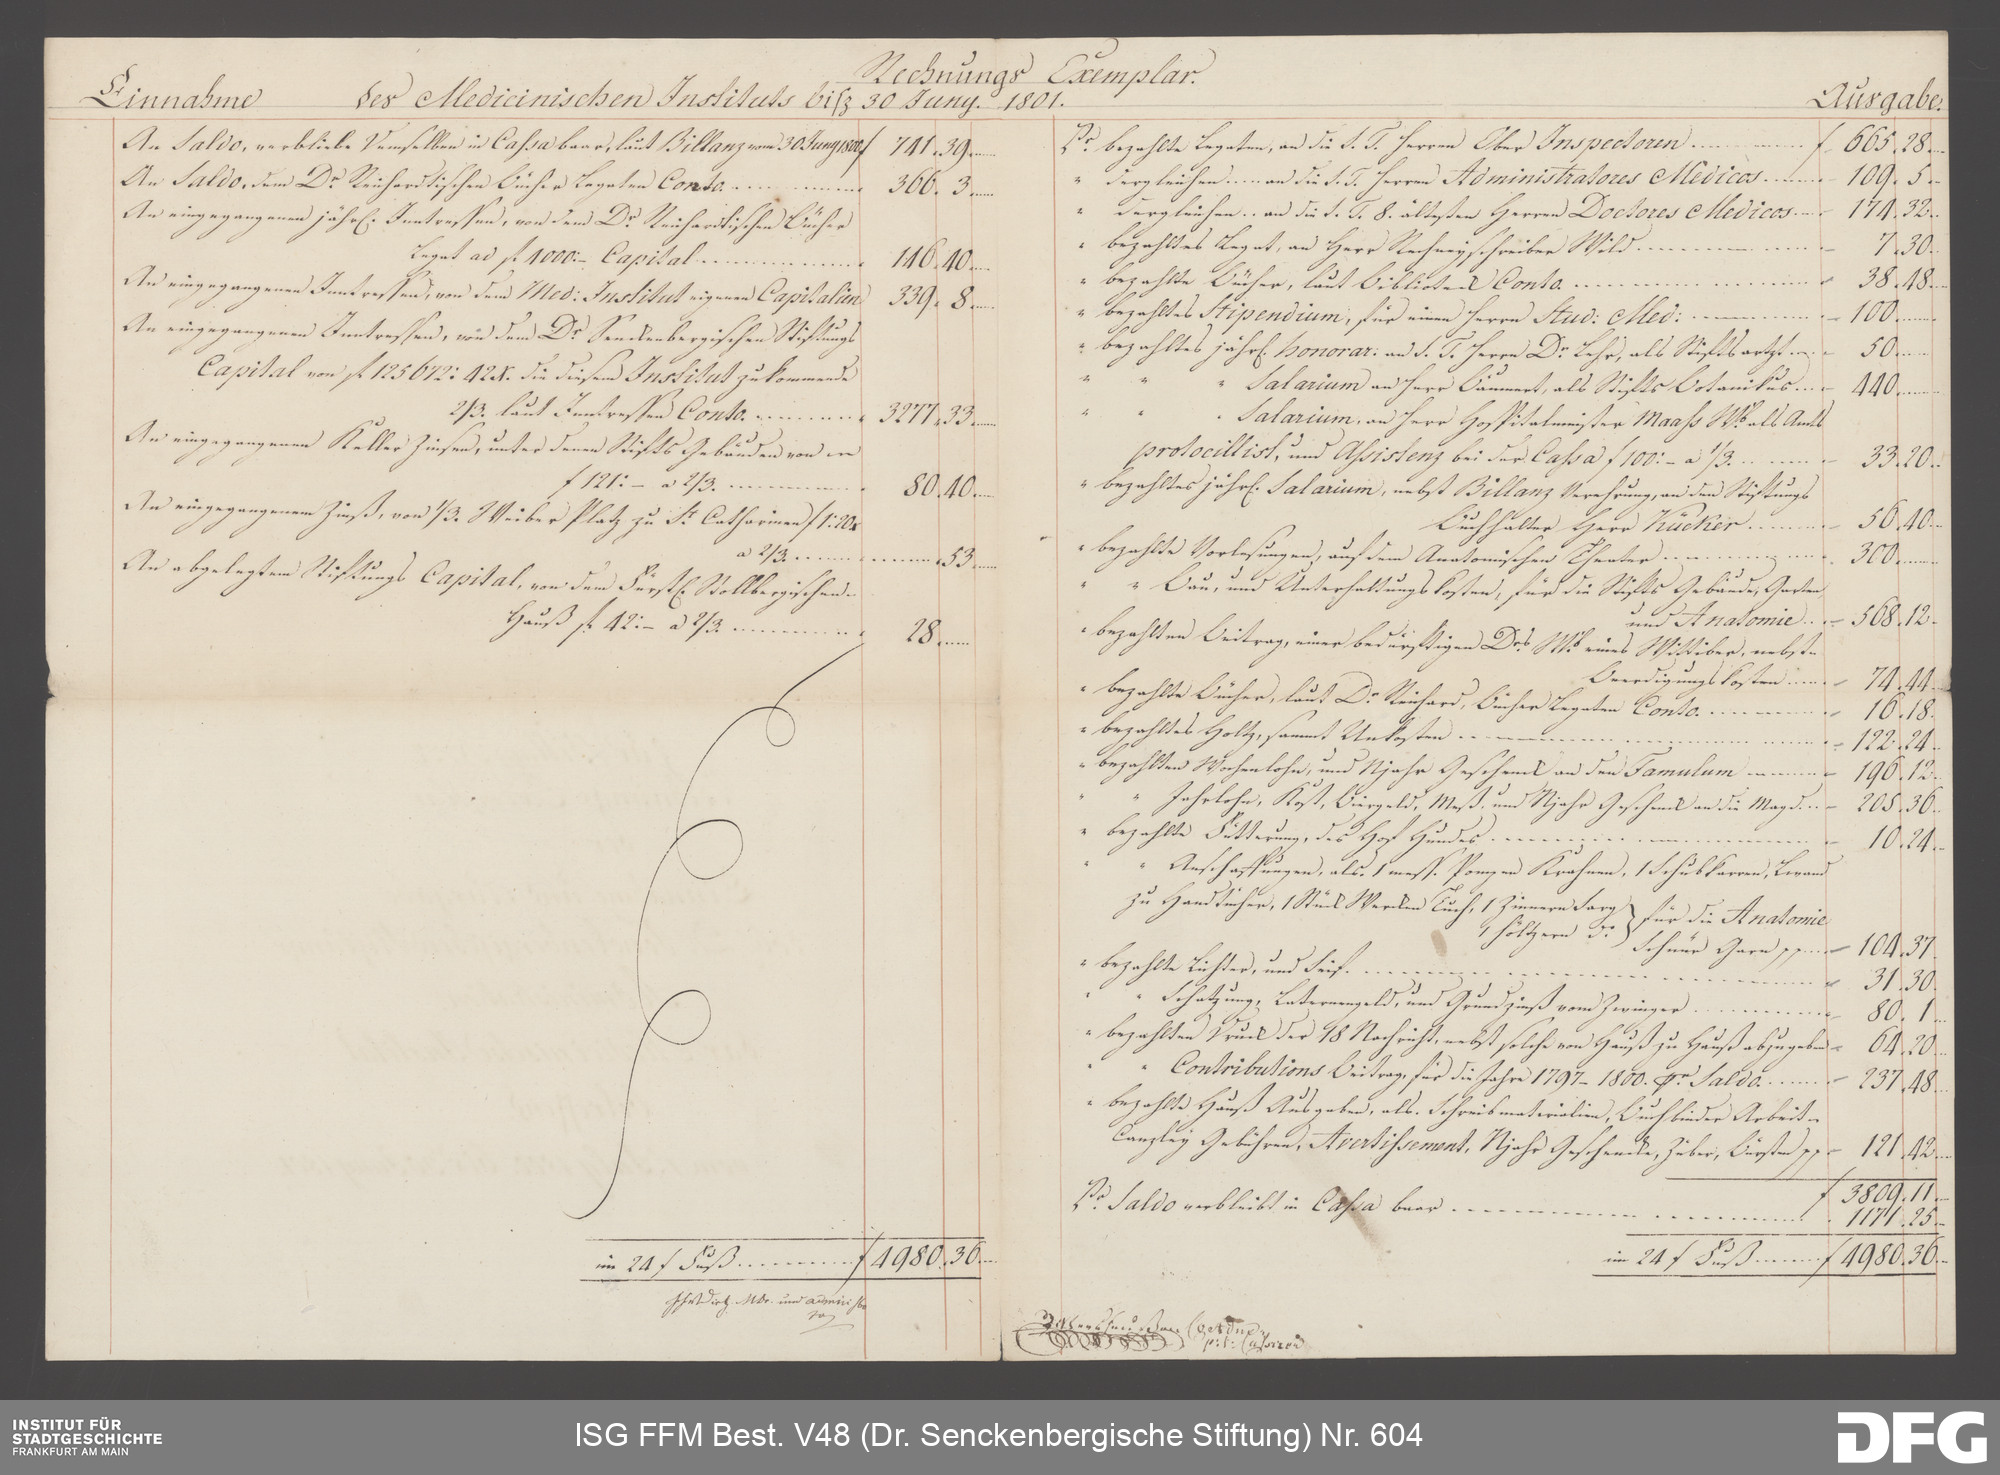 Rechnungs Exemplar.
Einnahme des Medicinischen Instituts bisz 30 Juny. 1801. Ausgabe.
An Saldo, verbliebe demselben in Cassa baar, laut Billanz vom 30 Juny 1800 f 741.39.
An Saldo, dem Dr. Reichardtischen Bücher Legaten Conto. 366. 3.
An eingegangenen jährl. Intressen, von dem Dr. Reichardtischen Bücher
Legat ad f 4000:- Capital 146.40.
An eingegangenen Intressen, von dem Med: Institut eigenen Capitalien 339. 8.
An eingegangenen Intressen, von dem Dr. Senckenbergischen Stiftungs
Capital von f 125672: 42 X. die diesem Institut zukommende
2/3. laut Intressen Conto. 3277.33.
An eingegangenen Keller Zinsen, unter denen Stifts Gebäuden von
f 121:- a 2/3. 80.40.
An eingegangenem Zinß, von 1/3. Weiber Platz zu St. Catharinen f 1:20x
a 2/3. 53.
An abgelegtem Stiftungs Capital, von dem Fürstl. Stollbergischen
Hauß f 42:- a 2/3. 28.
im 24 f Fuß f 4980.36.
Pr. bezahlte Legaten, an die S. T. Herren Ober Inspectoren f 665.28.
" dergleichen an die S. T. Herren Administratores Medicos 109. 5.
" dergleichen an die S. T. 8. ältesten Herren Doctores Medicos 174.32.
" bezahltes Legat, an Herr Rechneyschreiber Wild 7.30.
" bezahlte Bücher, laut Bibliotheck Conto. 38.48.
" bezahltes Stipendium, für einen Herrn Stud: Med: 100.
" bezahltes jährl. honorar: an S. T. Herrn Dr. Lehr, als Stiftsartzt 50.
" " " Salarium an Herr Bäumert, als Stifts Botanikus 440.
" " " Salarium, an Herr Hospitalmeister Maass Wb. als Amts
protocillist, und Assistenz bei der Cassa f 100:- a 1/3. 33.20.
" bezahltes jährl. Salarium, nebst Billanz Verehrung, an den Stiftungs
Buchhalter Herr Kücker 56.40.
" bezahlte Vorlesungen, auf dem Anatomischen Theater 300.
" " Bau, und Unterhaltungs kosten, für die Stifts Gebäude, Garten
und Anatomie 568.12.
" bezahlten Beitrag, einer bedürftigen Drs. Wb. eines Wittiber, nebst
Beerdigungskosten 74.44.
" bezahlte Bücher, laut Dr. Reichard, Bücher Legaten Conto. 16.18.
" bezahltes Holtz, sammt Unkosten 122.24.
" bezahlten Wochenlohn, und Njahr Geschenck an den Famulum 196.12.
" " Jahrlohn, Kost, Biergeld, Meß, und Njahr Geschenck an die Magd 205.36.
" bezahlte Fütterung, des Hof Hundes 10.24.
" " Anschaffungen, als. 1 mess. Pompen Krahnen, 1 Schubkarren,
zu Handtücher, 1 Stück Wercken Tuch, 1 Zinnern Sarg } für die Anatomie
1 höltzern do. } Schnür Garn pp 104.37.
" bezahlte Lichter, und Seif. 31.30.
" " Schatzung, Laternengeld, und Grundzinß vom Zwinger 80. 1.
" bezahlten Druck der 18 Nachricht, nebst solche von Hauß zu Hauß abzugeben 64.20.
" " Contributions Beitrag, für die Jahre 1797-1800. pr. Saldo. 237.48.
" bezahlte Hauß Ausgaben, als. Schreibmaterialien, Buchbinder Arbeit
Canzley Gebühren, Avertissement, Njahr Geschencke, Züber, Bürsten pp 121.42.
f 3809.11.
Pr. Saldo verbleibt in Cassa baar 1171.25.
im 24 f Fuß f 4980.36.
INSTITUT FÜR
STADTGESCHICHTE
FRANKFURT AM MAIN
ISG FFM Best. V48 (Dr. Senckenbergische Stiftung) Nr. 604
DFG